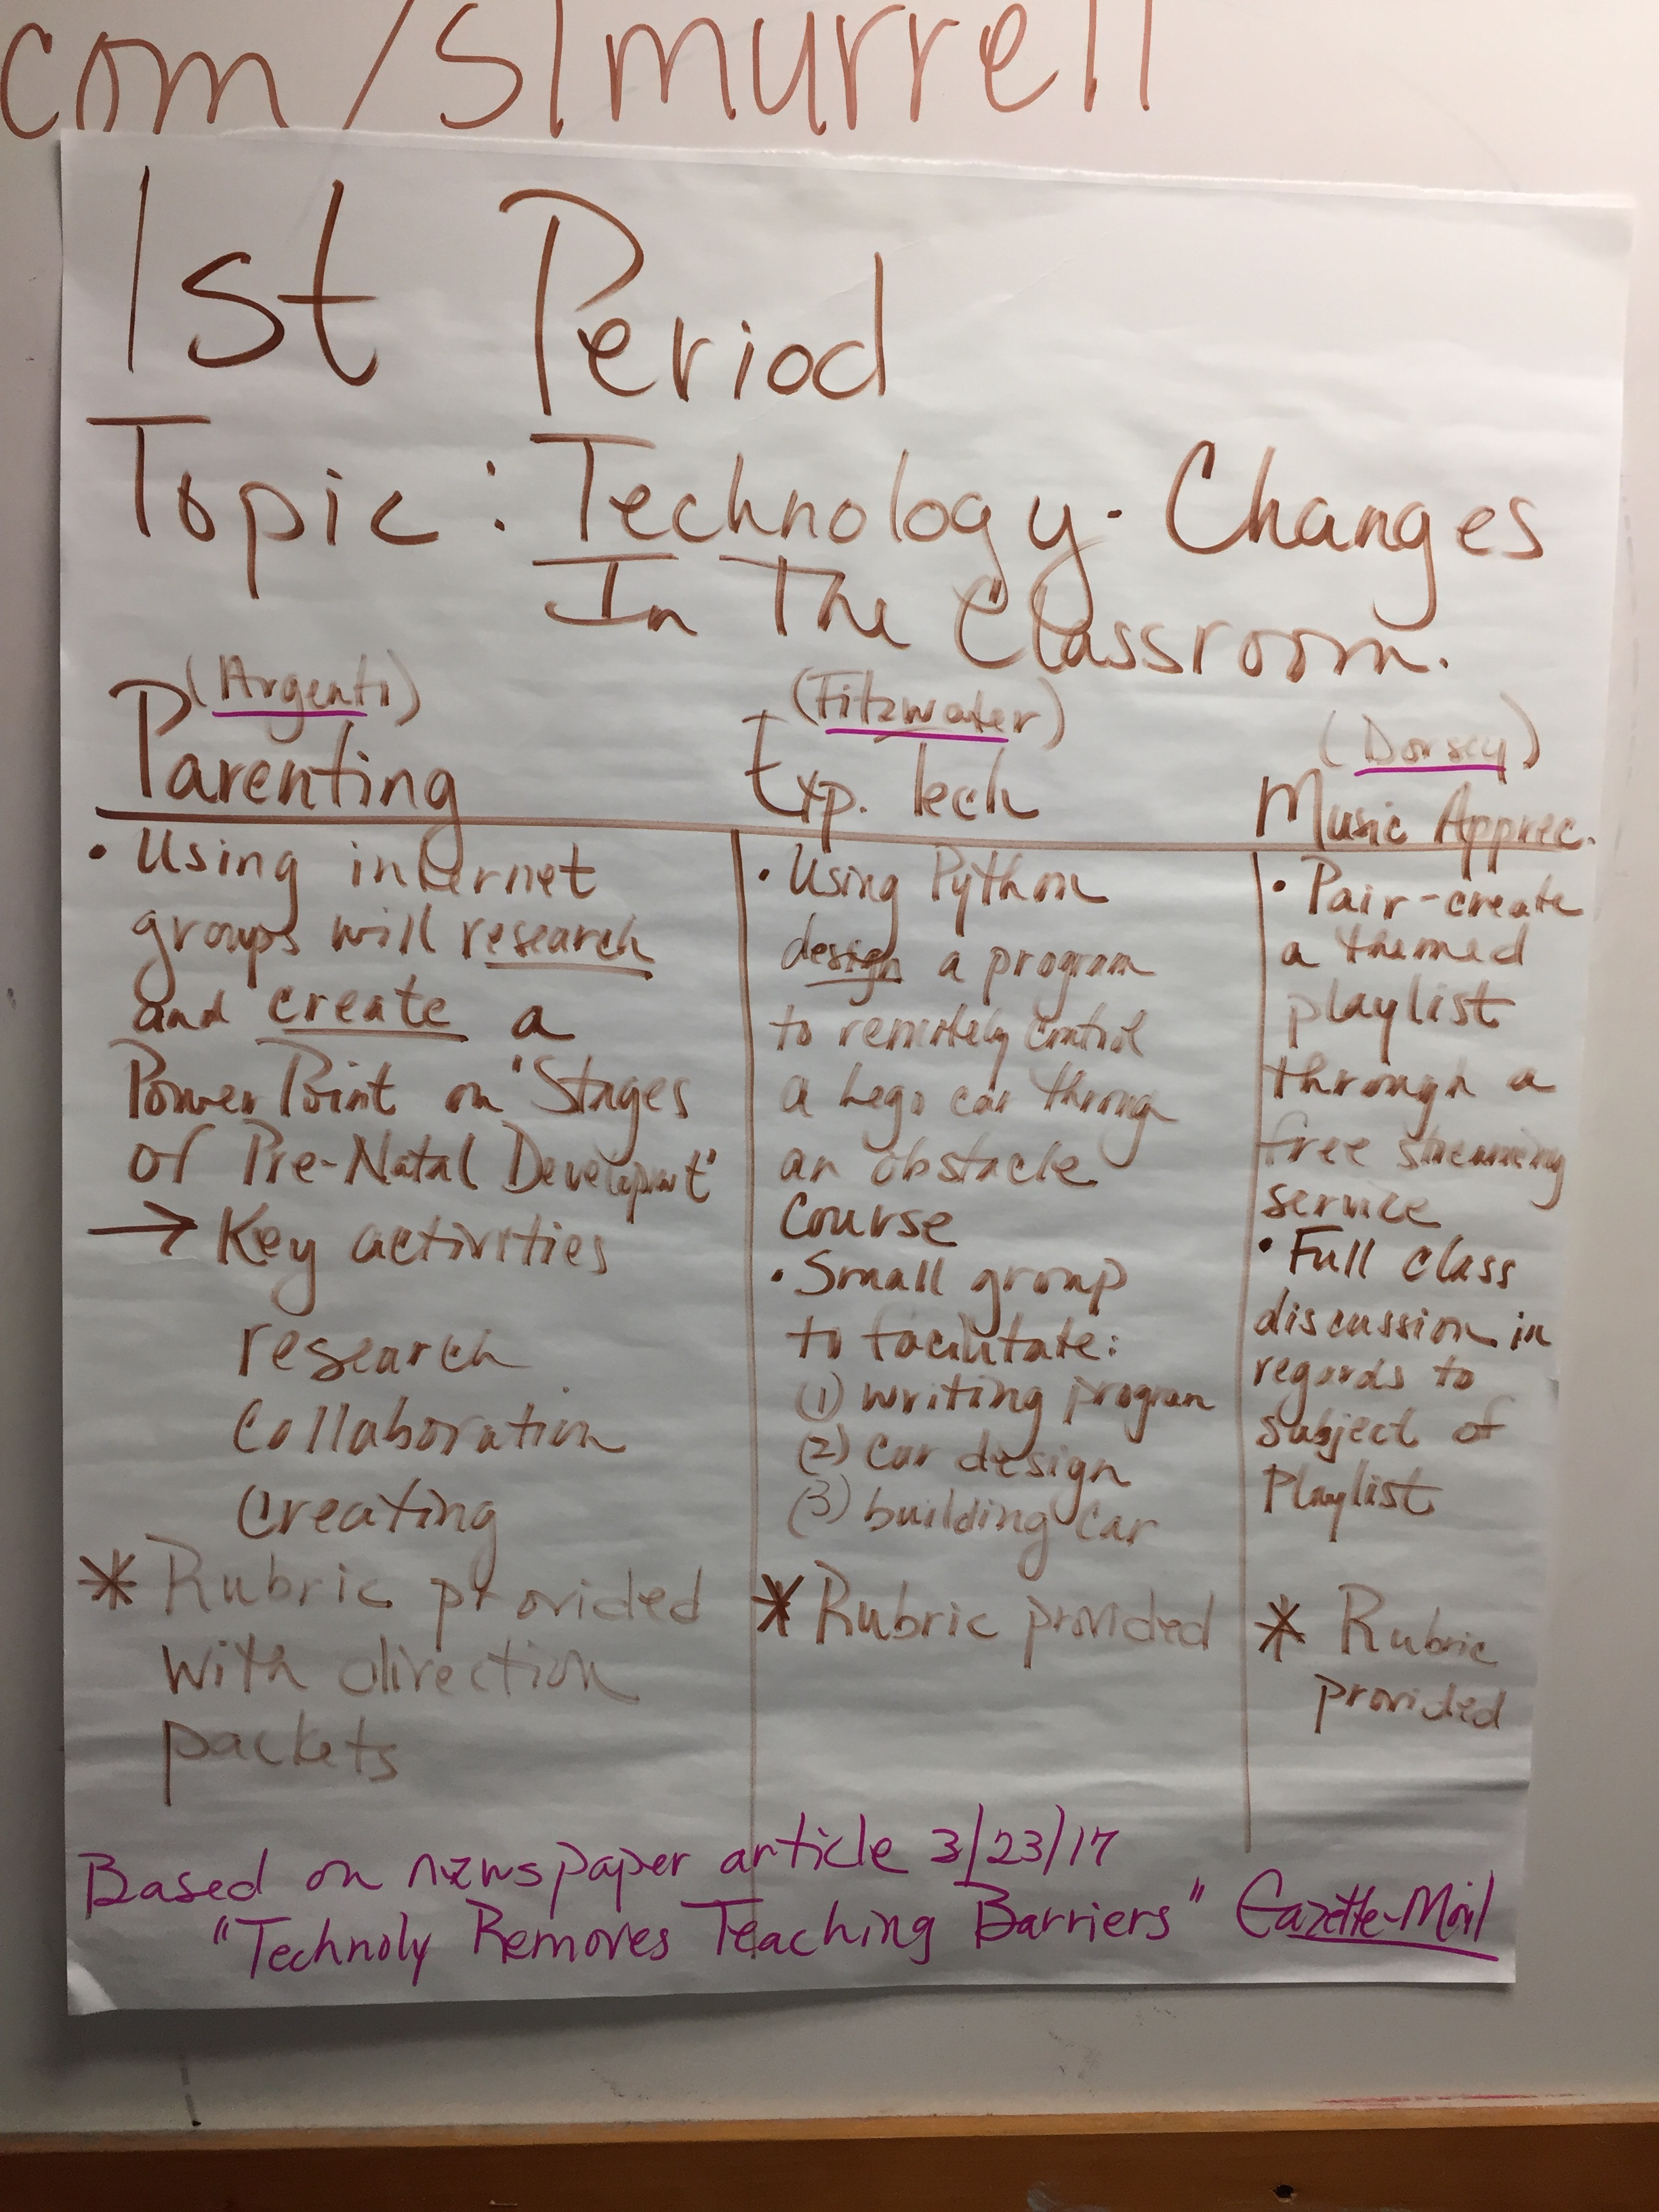 com/slmurrell
1st Period
Topic: Technology. Changes
In The Classroom.
(Argento)
Parenting
• Using internet
groups will research
and create a
PowerPoint on 'Stages
of Pre-Natal Development'
→ Key activities
research
Collaboration
Creating
* Rubric provided
with direction
packets
(Fitzwater)
Exp. Tech
• Using Python
design a program
to remotely control
a Lego car through
an obstacle
Course
• Small group
to facilitate:
(1) writing program
(2) car design
(3) building car
* Rubric provided
(Dorsey)
Music Apprec.
• Pair-create
a themed
playlist
through a
free streaming
service
• Full class
discussion in
regards to
subject of
Playlist
* Rubric
provided
Based on newspaper article 3/23/17
"Technoly Removes Teaching Barriers" Gazette-Mail